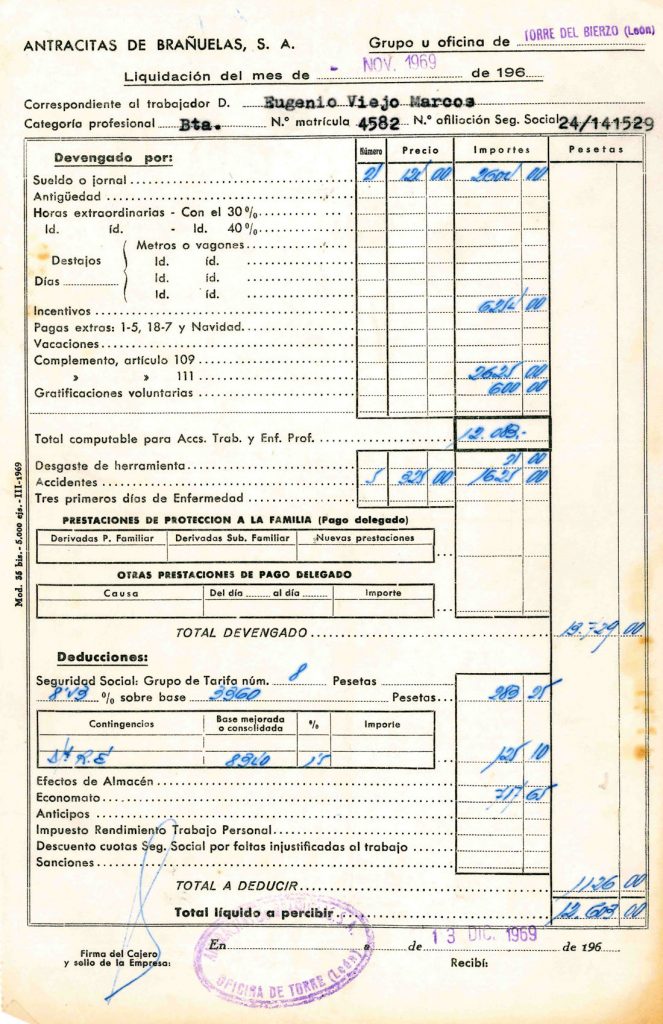 ANTRACITAS DE BRAÑUELAS, S. A. Grupo u oficina de TORRE DEL BIERZO (León)
Liquidación del mes de - NOV. 1969 de 196
Correspondiente al trabajador D. Eugenio Viejo Marcos
Categoría profesional Bta. N.º matrícula 4582 N.º afiliación Seg. Social 24/141529
Devengado por: Número Precio Importes Pesetas
Sueldo o jornal 21 00 00
Antigüedad
Horas extraordinarias - Con el 30%
Id. íd. - Id. 40%
Metros o vagones
Destajos Id. íd.
Días Id. íd.
Id. íd.
Incentivos 00
Pagas extras: 1-5, 18-7 y Navidad.
Vacaciones
Complemento, artículo 109
» » 111 2625 00
Gratificaciones voluntarias 600 00
Total computable para Accs. Trab. y Enf. Prof. 12.083.-
Desgaste de herramienta 21 00
Accidentes 5 325 00 1625 00
Tres primeros días de Enfermedad
PRESTACIONES DE PROTECCION A LA FAMILIA (Pago delegado)
Derivadas P. Familiar Derivadas Sub. Familiar Nuevas prestaciones
OTRAS PRESTACIONES DE PAGO DELEGADO
Causa Del día al día Importe
TOTAL DEVENGADO 13.729 00
Deducciones:
Seguridad Social: Grupo de Tarifa núm. 8 Pesetas
% sobre base 3360 Pesetas 283 25
Contingencias Base mejorada o consolidada % Importe
125 10
Efectos de Almacén
Economato 717 65
Anticipos
Impuesto Rendimiento Trabajo Personal
Descuento cuotas Seg. Social por faltas injustificadas al trabajo
Sanciones
TOTAL A DEDUCIR 1126 00
Total líquido a percibir 12.603 00
En a de 13 DIC. 1969 de 196
Firma del Cajero
y sello de la Empresa: Recibí:
OFICINA DE TORRE (León)
Mod. 35 bis.- 5.000 ejs. - III-1969